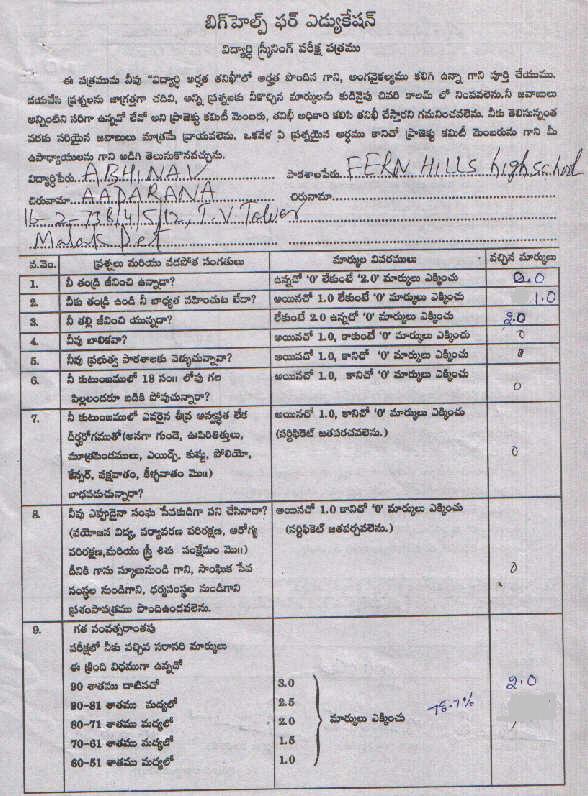 బిగ్‌హెల్ప్ ఫర్ ఎడ్యుకేషన్
విద్యార్థి స్క్రీనింగ్ పరీక్ష పత్రము
ఈ పత్రమును వీవు "విద్యార్థి అర్హత తనిఖీ"లో అర్హత పొందిన గాని, అంగవైకల్యము కలిగి ఉన్నా గాని పూర్తి చేయుము.
దయచేసి ప్రశ్నలను జాగ్రత్తగా చదివి, అన్ని ప్రశ్నలకు నీకొచ్చిన మార్కులను కుడివైపు చివరి కాలమ్ లో నింపవలెను.నీ జవాబులు
అన్నింటిని సరిగా ఉన్నదో లేదో అని ప్రాజెక్టు కమిటీ మెంబరు, తనిఖీ అధికారి కలిసి తనిఖీ చేస్తారని గమనించవలెను. నీకు తెలిసినంత
వరకు సరియైన జవాబులు మాత్రమే వ్రాయవలెను. ఒకవేళ ఏ ప్రశ్నయైన అర్ధము కానిచో ప్రాజెక్టు కమిటీ మెంబరును గాని మీ
ఉపాధ్యాయులను గాని అడిగి తెలుసుకొనవచ్చును.
విద్యార్థిపేరు ABHINAV పాఠశాలపేరు FERN HILLS high school
చిరునామా AADARANA చిరునామా
16-2-738/4/5/12, T.V Tower
Malak Pet
వ.నెం. ప్రశ్నలు మరియు నేడపోక సంగతులు మార్కుల వివరములు వచ్చిన మార్కులు
1. నీ తండ్రి జీవించి ఉన్నాడా? ఉన్నచో '0' లేకుంటే '2.0' మార్కులు ఎక్కించు 0.0
2. నీకు తండ్రి ఉండి నీ బాధ్యత వహించుట లేదా? అయినచో 1.0 లేకుంటే '0' మార్కులు ఎక్కించు 1.0
3. నీ తల్లి జీవించి యున్నదా? లేకుంటే 2.0 ఉన్నచో '0' మార్కులు ఎక్కించు 2.0
4. నీవు బాలికవా? అయినచో 1.0, కాకుంటే '0' మార్కులు ఎక్కించు 0
5. నీవు ప్రభుత్వ పాఠశాలకు వెళ్ళుచున్నావా? అయినచో 1.0, కానిచో '0' మార్కులు ఎక్కించు 0
6. నీ కుటుంబములో 18 సం॥ లోపు గల అయినచో 1.0, కానిచో '0' మార్కులు ఎక్కించు
పిల్లలందరూ బడికి పోవుచున్నారా? 0
7. నీ కుటుంబములో ఎవరైన తీవ్ర అస్వస్థత లేక అయినచో 1.0, కానిచో '0' మార్కులు ఎక్కించు
దీర్ఘరోగముతో(అనగా గుండె, ఊపిరితిత్తులు, (సర్టిఫికెట్ జతపరచవలెను.)
మూత్రపిండములు, ఎయిడ్స్, కుష్టు, పోలియో,
కేన్సర్, పక్షవాతం, కీళ్ళవాతం మొ॥) 0
బాధపడుచున్నారా?
8. నీవు ఎప్పుడైనా సంఘ సేవకుడిగా పని చేసినావా? అయినచో 1.0 కానిచో '0' మార్కులు ఎక్కించు
(వయోజన విద్య, పర్యావరణ పరిరక్షణ, ఆరోగ్య (సర్టిఫికెట్ జతపర్చవలెను.)
పరిరక్షణ,మరియు స్త్రీ శిశు సంక్షేమం మొ॥)
దీనికి గాను స్కూలునుండి గాని, సాంఘిక సేవ 0
సంస్థల నుండిగాని, ధర్మసంస్థల నుండిగాని
ప్రశంసాపత్రము పొందిఉండవలెను.
9. గత సంవత్సరాంతపు
పరీక్షలో నీకు వచ్చిన సరాసరి మార్కులు
ఈ క్రింది విధముగా ఉన్నచో
90 శాతము దాటినచో 3.0 2.0
90-81 శాతము మధ్యలో 2.5 78.7%
80-71 శాతము మధ్యలో 2.0 మార్కులు ఎక్కించు
70-61 శాతము మధ్యలో 1.5
60-51 శాతము మధ్యలో 1.0